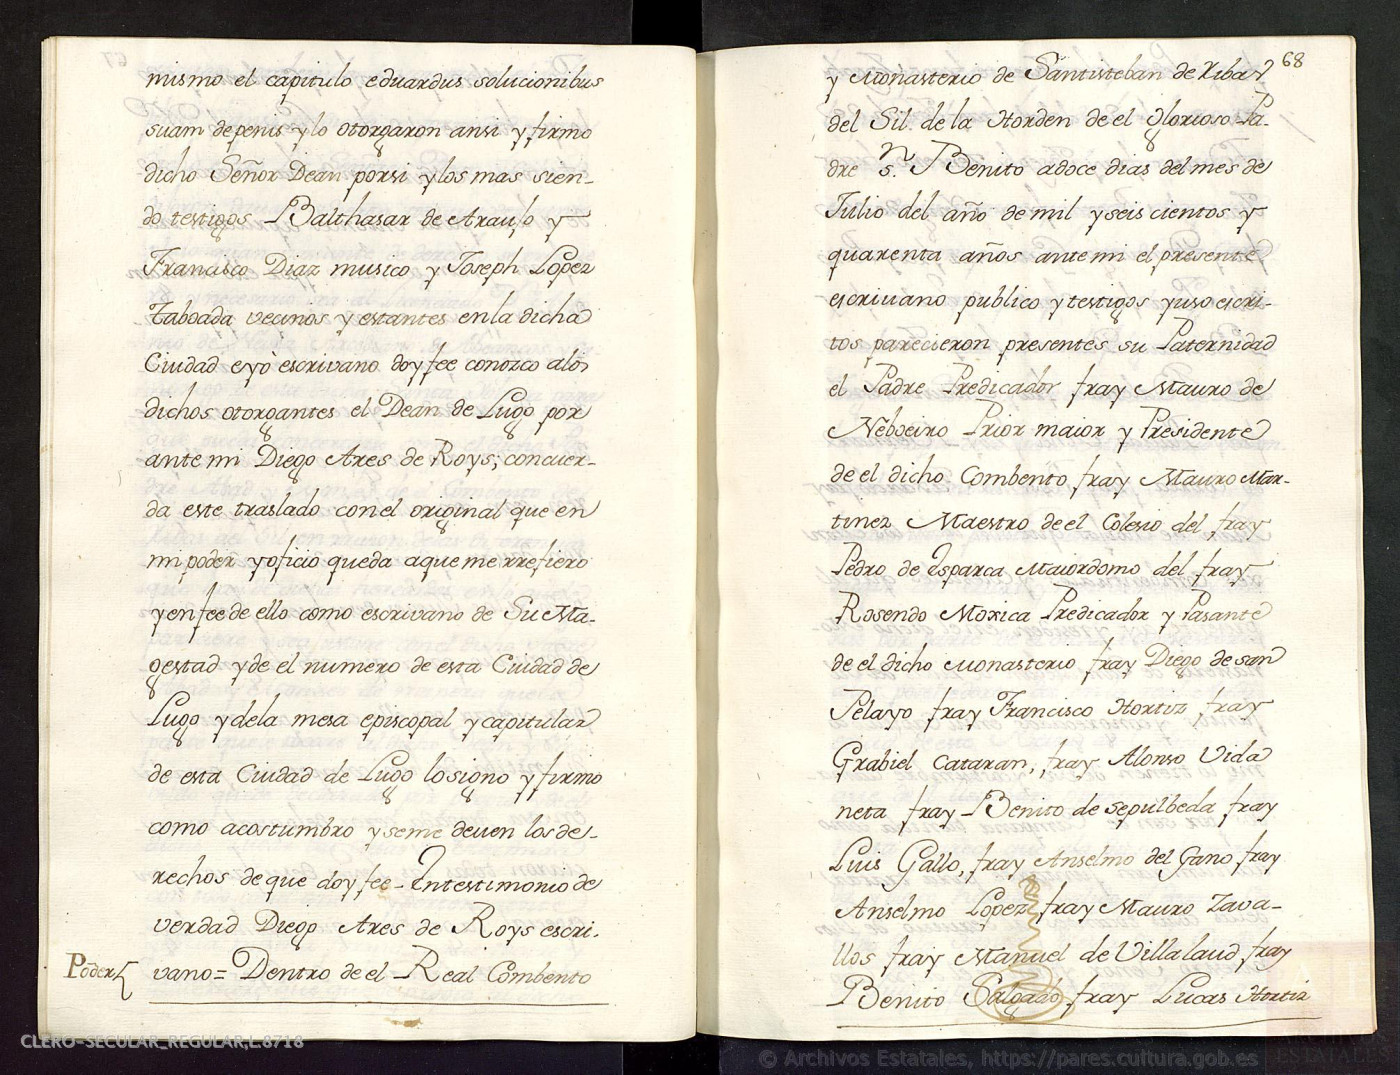 mismo el capitulo eduardus solucionibus
suam de penis y lo otorgaron ansi y firmo
dicho Señor Dean porsi y los mas sien-
do testigos Balthasar de Araujo y
Francisco Diaz musico y Joseph Lopez
Taboada vecinos y estantes en la dicha
Ciudad e yò escrivano doy fee conozco alos
dichos otorgantes el Dean de Lugo por
ante mi Diego Ares de Roys; concuer-
da este traslado con el original que en
mi poder y oficio queda a que me rrefiero
y en fee de ello como escrivano de Su Ma-
gestad y de el numero de esta Ciudad de
Lugo y dela mesa episcopal y capitular
de esta Ciudad de Lugo lo signo y firmo
como acostumbro y seme deven los de-
rechos de que doy fee - En testimonio de
verdad Diego Ares de Roys escri-
Poder vano = Dentro de el Real Combento
68
y Monasterio de Santisteban de Ribas
del Sil de la Horden de el Glorioso Pa-
dre Sn. Benito a doce dias del mes de
Julio del año de mil y seis cientos y
quarenta años ante mi el presente
escriuano publico y testigos yuso escri-
tos parecieron presentes su Paternidad
el Padre Predicador fray Mauro de
Neboeiro Prior maior y Presidente
de el dicho Combento fray Mauro Mar-
tinez Maestro de el Colesio del fray
Pedro de Esparca Maiordomo del fray
Rosendo Moxica Predicador y Pasante
de el dicho Monasterio fray Diego de san
Pelayo fray Francisco Hortiz fray
Grabiel Cataran, fray Alonso Vida
neta fray Benito de Sepulbeda fray
Luis Gallo, fray Anselmo del Gano fray
Anselmo Lopez fray Mauro Zava-
llos fray Manuel de Villalaud fray
Benito Salgado fray Lucas Hortiz
CLERO-SECULAR_REGULAR,L.8718
© Archivos Estatales, https://pares.cultura.gob.es
ARCHIVOS
ESTATALES